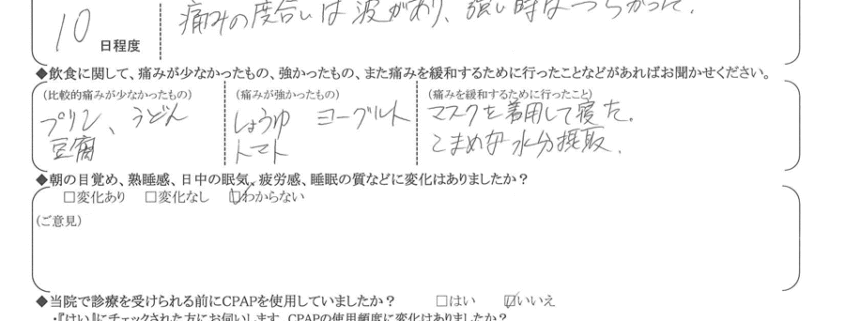 10 日程度
痛みの度合いは波があり、強い時はつらかった。
◆飲食に関して、痛みが少なかったもの、強かったもの、また痛みを緩和するために行ったことなどがあればお聞かせください。
(比較的痛みが少なかったもの)
プリン、うどん
豆腐
(痛みが強かったもの)
しょうゆ ヨーグルト
トマト
(痛みを緩和するために行ったこと)
マスクを着用して寝た。
こまめな水分摂取。
◆朝の目覚め、熟睡感、日中の眠気、疲労感、睡眠の質などに変化はありましたか？
□変化あり □変化なし ☑わからない
(ご意見)
◆当院で診療を受けられる前にCPAPを使用していましたか？ □はい ☑いいえ
・『はい』にチェックされた方にお伺いします。CPAPの使用頻度に変化はありましたか？